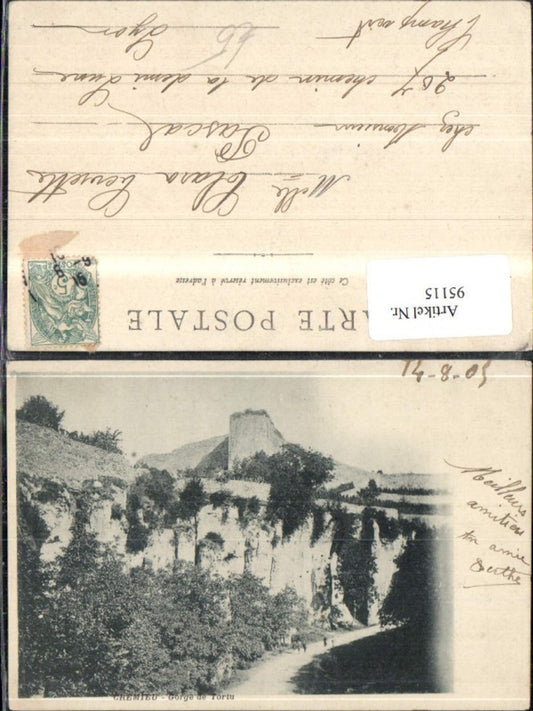 CARTE POSTALE
Ce côté est exclusivement réservé à l'adresse
Melle Clara
chez Monsieur Pascal
207 chemin de la demi Lune
Lyon
Artikel Nr.
95115
5
14-8-05
Meilleures
amitiés
ton amie
Berthe
CREMIEU - Gorge de Tortu